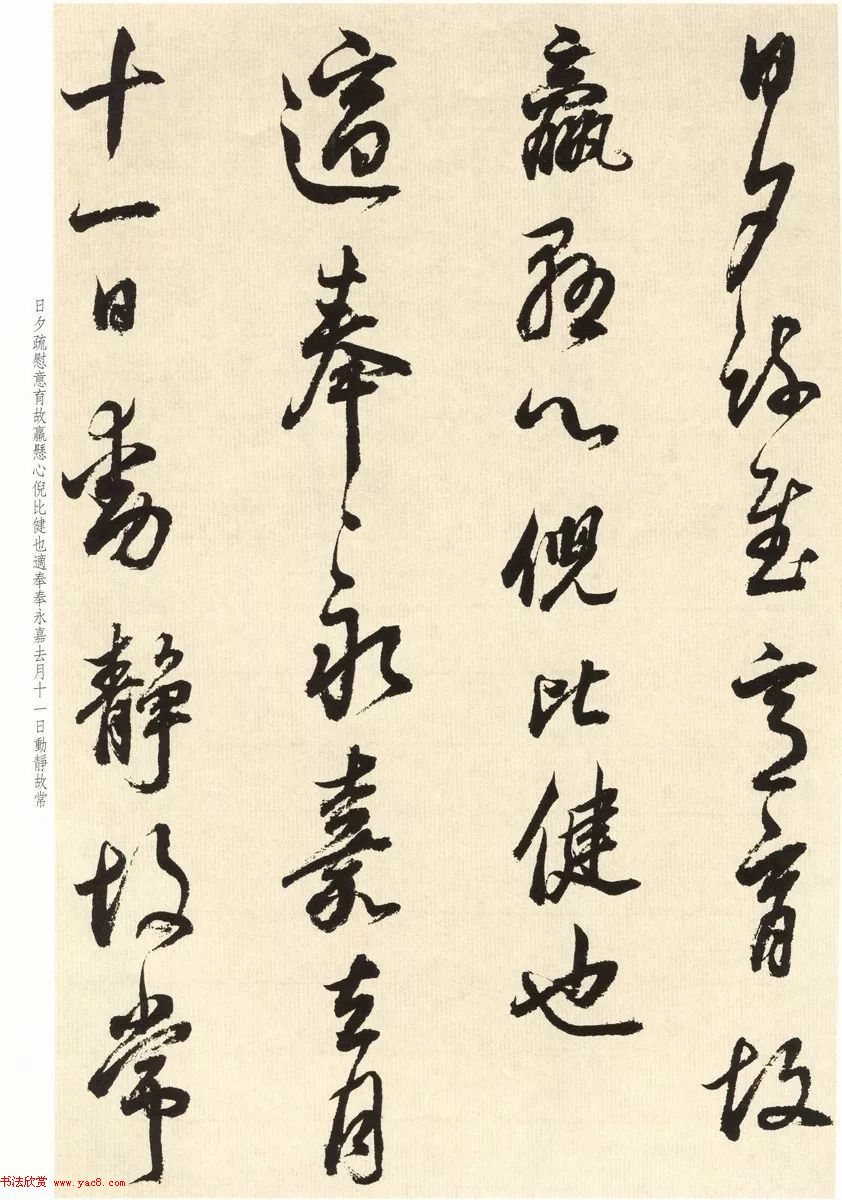 日夕疏慰意育故
羸懸心倪比健也
適奉〻永嘉去月
十一日動靜故常
日夕疏慰意育故羸懸心倪比健也適奉奉永嘉去月十一日動靜故常
书法欣赏 www.yac8.com